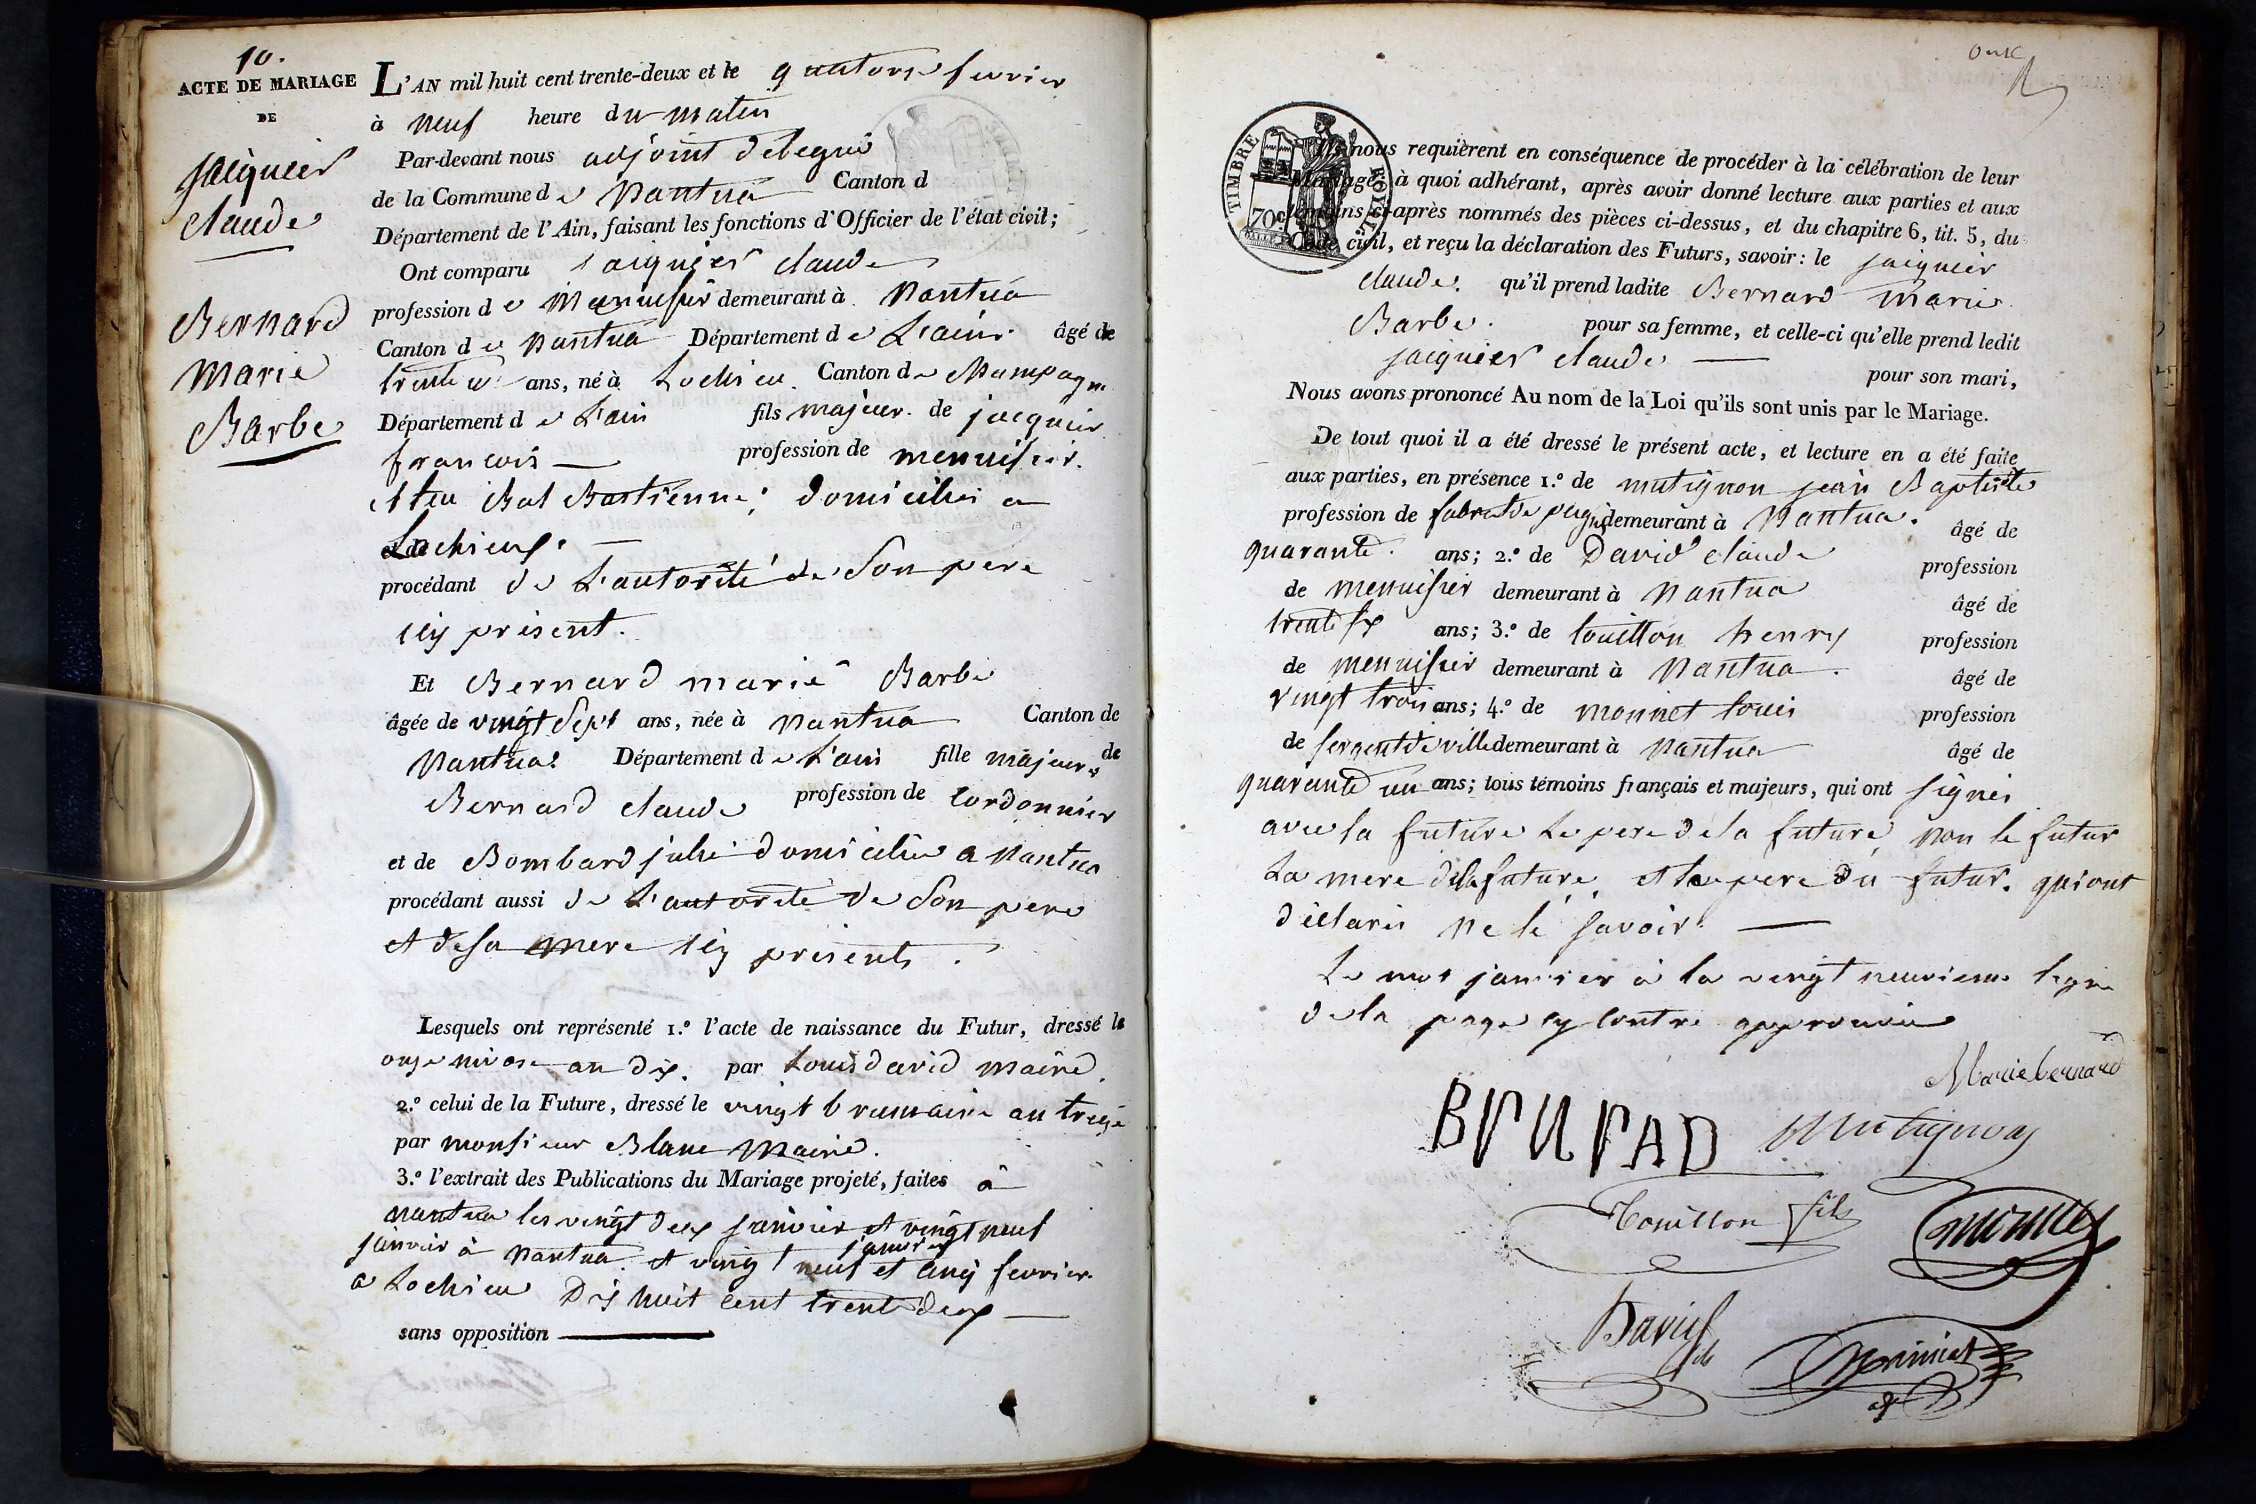 10.
ACTE DE MARIAGE
DE
jacquier
claude
Bernard
Marie
Barbe
L'AN mil huit cent trente-deux et le quatorze fevrier
à neuf heure du matin
Par-devant nous adjoint délegué
de la Commune de Nantua Canton d
Département de l'Ain, faisant les fonctions d'Officier de l'état civil;
Ont comparu jacquier claude
profession de Menuisier demeurant à Nantua
Canton de Nantua Département de L'ain âgé de
trente ans, né à Lochieu Canton de Champagne
Département de L'ain fils majeur de jacquier
francois profession de menuisier.
et feu Bal Bastienne, domicilié a
Lochieux.
procédant de L'autorité de Son pere
icy présent.
Et Bernard marie Barbe
âgée de vingt Sept ans, née à Nantua Canton de
Nantua Département de L'ain fille majeure de
Bernard claude profession de Cordonnier
et de Bombard julie domiciliés a Nantua
procédant aussi de L'autorité de Son pere
et de sa mere icy présents.
Lesquels ont représenté 1.º l'acte de naissance du Futur, dressé le
onze nivose an dix. par Louis david maire
2.º celui de la Future, dressé le vingt brumaire an treize
par monsieur Blanc Maire.
3.º l'extrait des Publications du Mariage projeté, faites à
nantua les vingt deux janvier et vingt neuf
janvier à Nantua et vingt neuf janvier et cinq fevrier
a Lochieu Dix huit cent trente deux
sans opposition
onze
TIMBRE ROYAL
70c
Ils nous requièrent en conséquence de procéder à la célébration de leur
Mariage, à quoi adhérant, après avoir donné lecture aux parties et aux
témoins ci-après nommés des pièces ci-dessus, et du chapitre 6, tit. 5, du
Code civil, et reçu la déclaration des Futurs, savoir: le jacquier
claude. qu'il prend ladite Bernard marie
Barbe. pour sa femme, et celle-ci qu'elle prend ledit
jacquier claude pour son mari,
Nous avons prononcé Au nom de la Loi qu'ils sont unis par le Mariage.
De tout quoi il a été dressé le présent acte, et lecture en a été faite
aux parties, en présence 1.º de mutignon jean Baptiste
profession de fabrt de peigne demeurant à Nantua. âgé de
quarante. ans; 2.º de David claude profession
de menuisier demeurant à Nantua âgé de
trente six ans; 3.º de touillon henry profession
de menuisier demeurant à Nantua. âgé de
vingt trois ans; 4.º de monnet louis profession
de sergent de ville demeurant à Nantua âgé de
quarante un ans; tous témoins français et majeurs, qui ont signés
avec la future Le pere de la future, non le futur
La mere de la future, et le pere du futur. qui ont
déclarés ne le savoir.
Le mot janvier à la vingt neuvieme ligne
de la page cy contre approuvée
Marie bernard
BrNrAD
Mutignon
Touillon fils
monnet
David